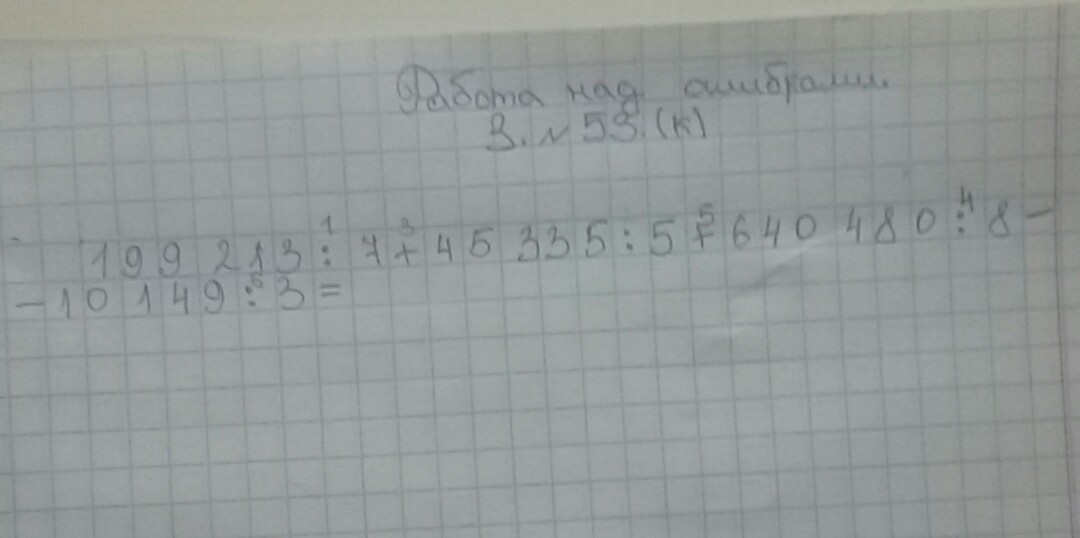 Работа над ошибками.
З. № 53. (к)
199 213 : 7 + 45 335 : 5 + 640 480 : 8 –
– 10 149 : 3 =